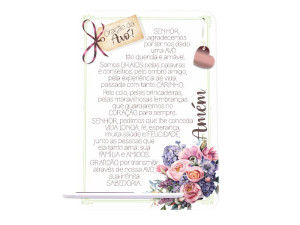 Oração da
Avó!
SENHOR,
agradecemos
por ser nos dado
uma AVÓ
tão querida e amável.
Somos GRATOS pelas palavras
e conselhos, pelo ombro amigo,
pela experiência de vida,
passada com tanto CARINHO.
Pelo colo, pelas brincadeiras,
pelas maravilhosas lembranças
que guardaremos no
CORAÇÃO para sempre.
SENHOR, pedimos que lhe conceda
VIDA LONGA, fé, esperança,
muita saúde e FELICIDADE,
junto as pessoas que
ela tanto ama: sua
FAMÍLIA e AMIGOS.
GRATIDÃO por transmitir
através de nossa AVÓ
sua infinita
SABEDORIA.
Amém